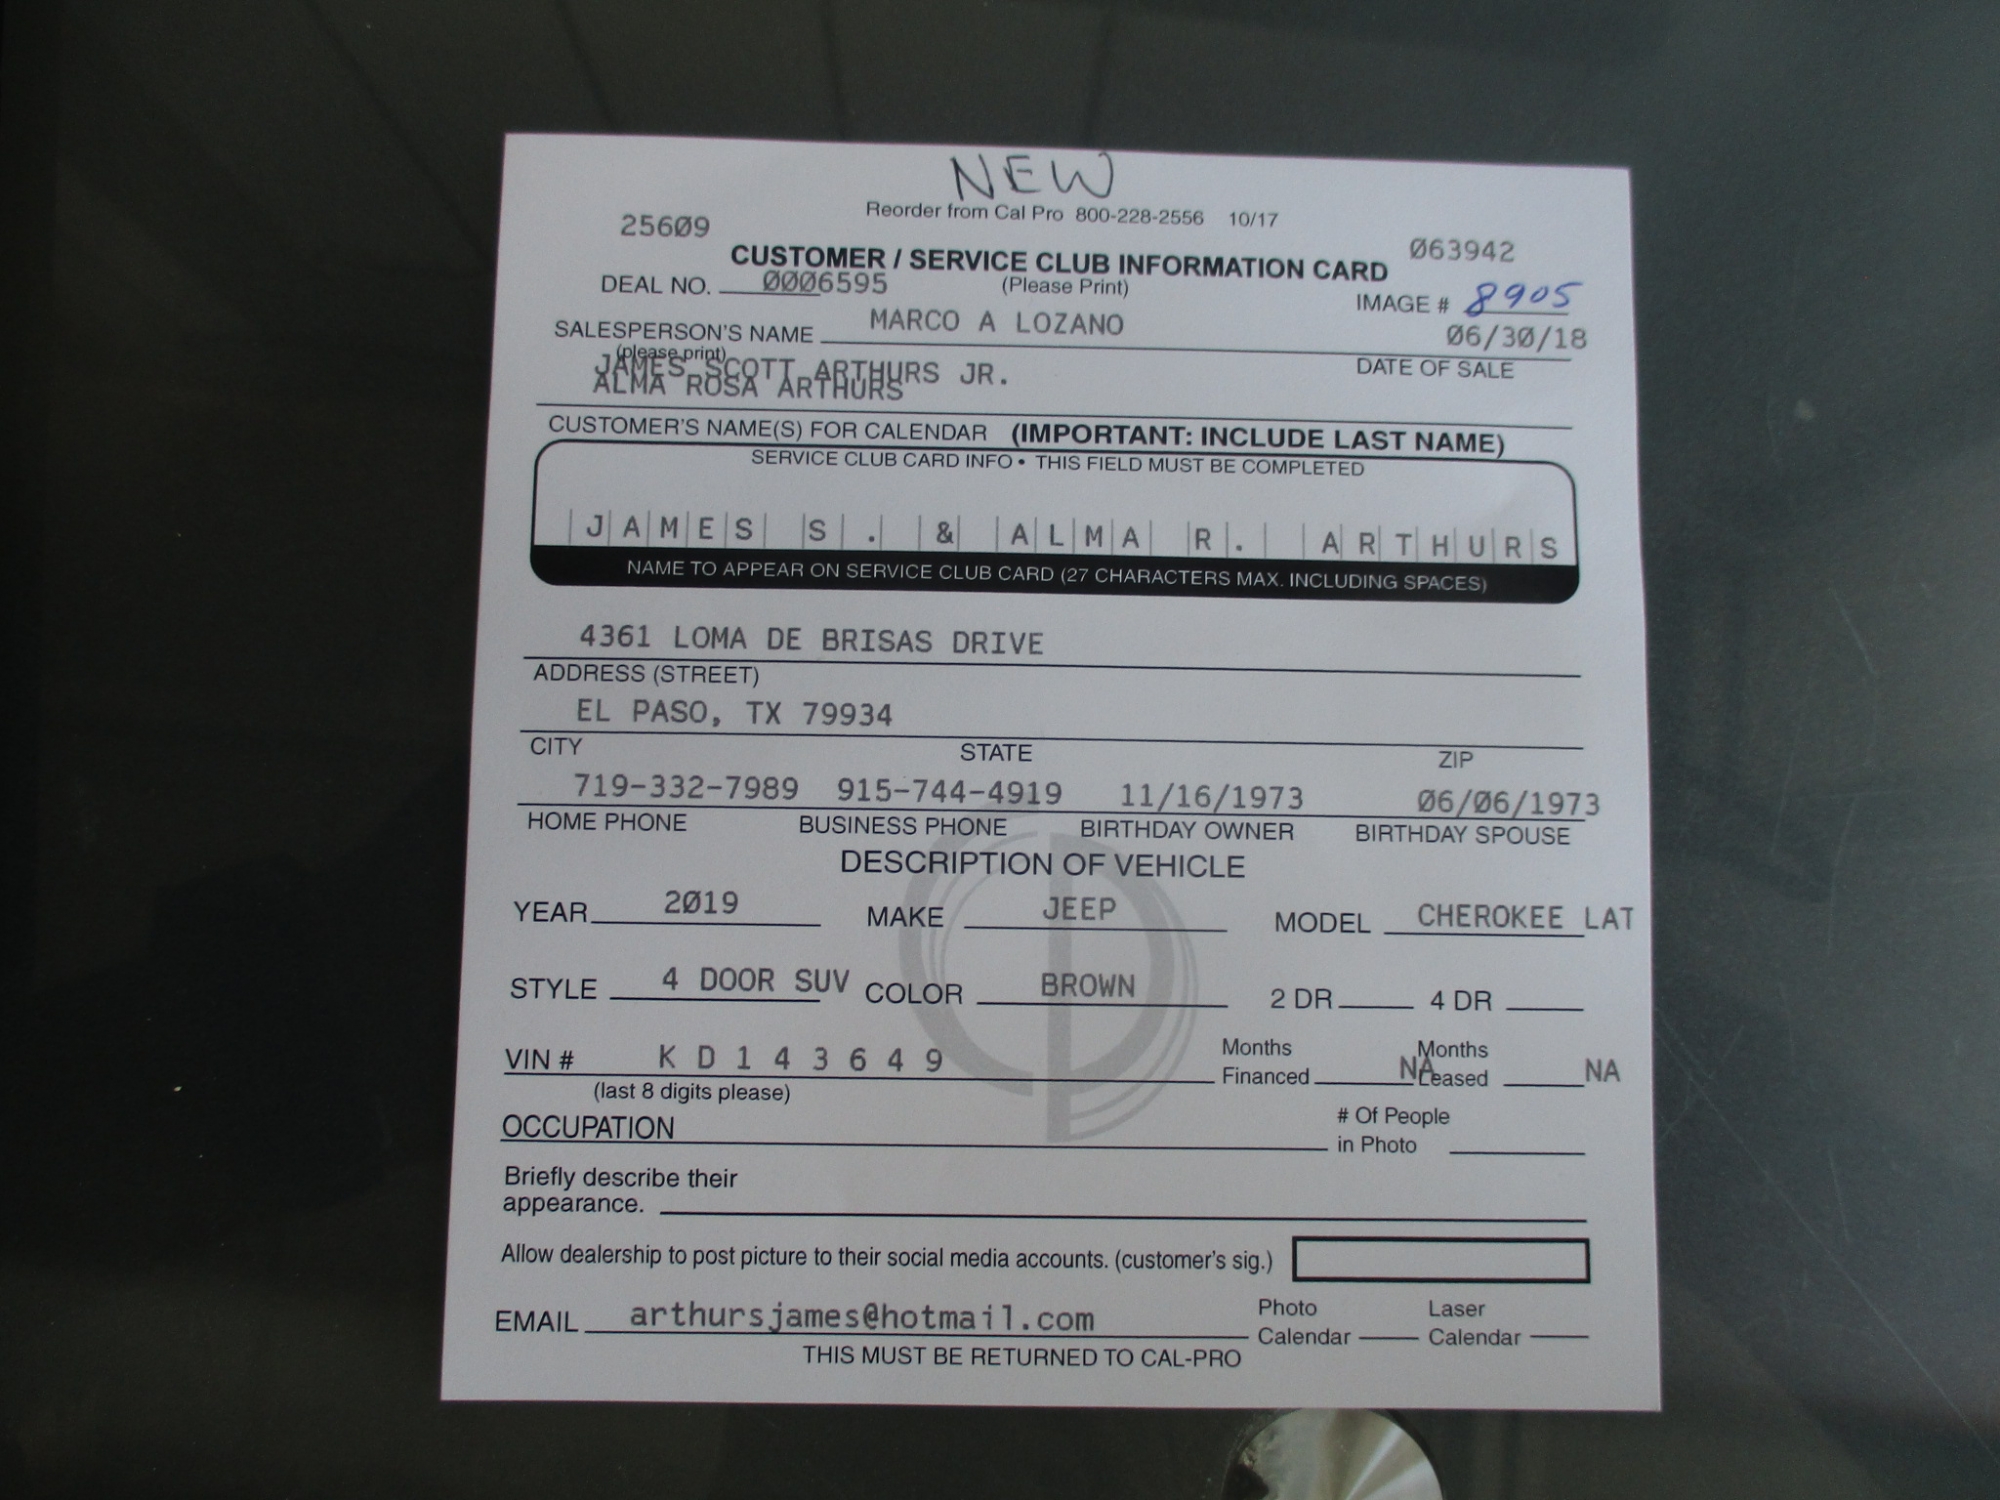 NEW
Reorder from Cal Pro 800-228-2556 10/17
25609 063942
CUSTOMER / SERVICE CLUB INFORMATION CARD
DEAL NO. 0006595 (Please Print) IMAGE # 8905
SALESPERSON'S NAME MARCO A LOZANO 06/30/18
(please print) DATE OF SALE
JAMES SCOTT ARTHURS JR.
ALMA ROSA ARTHURS
CUSTOMER'S NAME(S) FOR CALENDAR (IMPORTANT: INCLUDE LAST NAME)
SERVICE CLUB CARD INFO • THIS FIELD MUST BE COMPLETED
JAMES S. & ALMA R. ARTHURS
NAME TO APPEAR ON SERVICE CLUB CARD (27 CHARACTERS MAX. INCLUDING SPACES)
4361 LOMA DE BRISAS DRIVE
ADDRESS (STREET)
EL PASO, TX 79934
CITY STATE ZIP
719-332-7989 915-744-4919 11/16/1973 06/06/1973
HOME PHONE BUSINESS PHONE BIRTHDAY OWNER BIRTHDAY SPOUSE
DESCRIPTION OF VEHICLE
YEAR 2019 MAKE JEEP MODEL CHEROKEE LAT
STYLE 4 DOOR SUV COLOR BROWN 2 DR 4 DR
VIN # K D 1 4 3 6 4 9 Months Financed NA Months Leased NA
(last 8 digits please)
OCCUPATION # Of People in Photo
Briefly describe their
appearance.
Allow dealership to post picture to their social media accounts. (customer's sig.)
EMAIL arthursjames@hotmail.com Photo Calendar Laser Calendar
THIS MUST BE RETURNED TO CAL-PRO